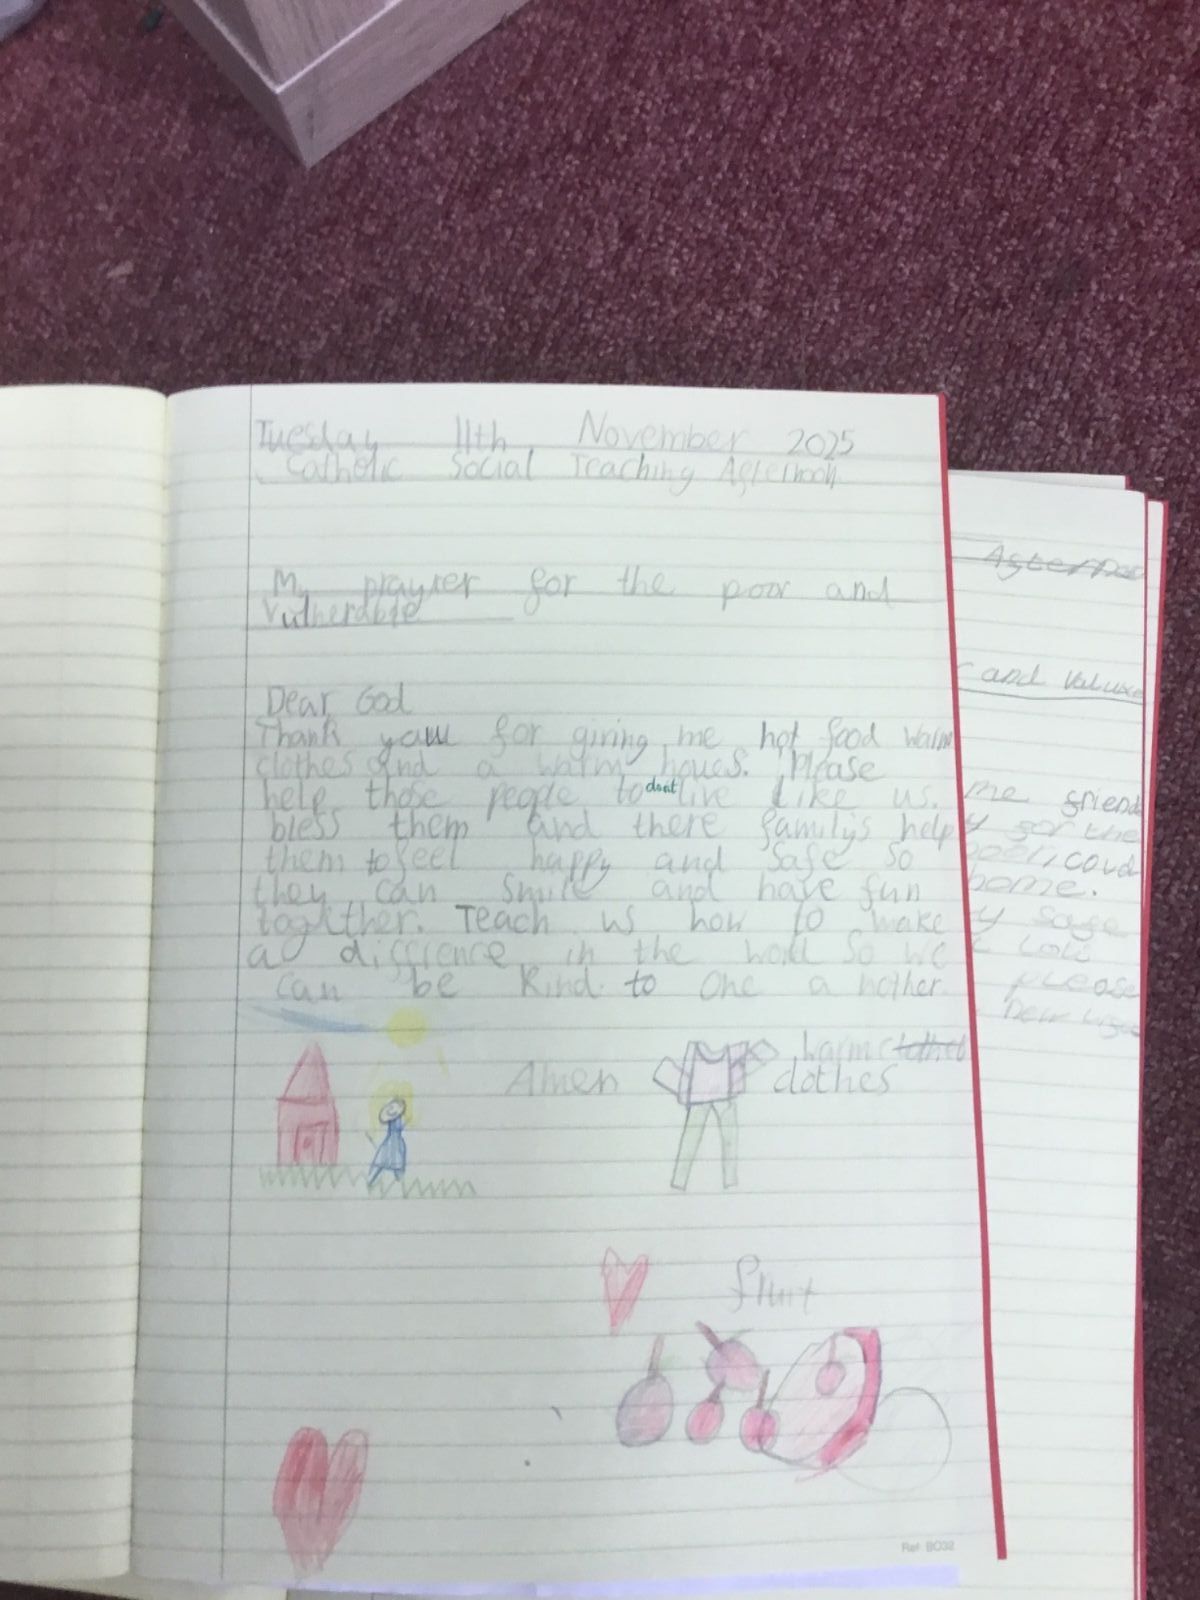 Tuesday 11th November 2025
Catholic Social Teaching Afternoon
My prayrer for the poor and
Vulnerable
Dear God
Thank you for giving me hot food warm
clothes and a warm houes. Please
help those people to dont live like us.
bless them and there family's help
them to feel happy and safe so
they can smile and have fun
together. Teach us how to make
a diffrence in the world so we
can be kind to one a nother.
Amen
warm clothes
fruit
Ref: BO32
and
me friend
home.
please